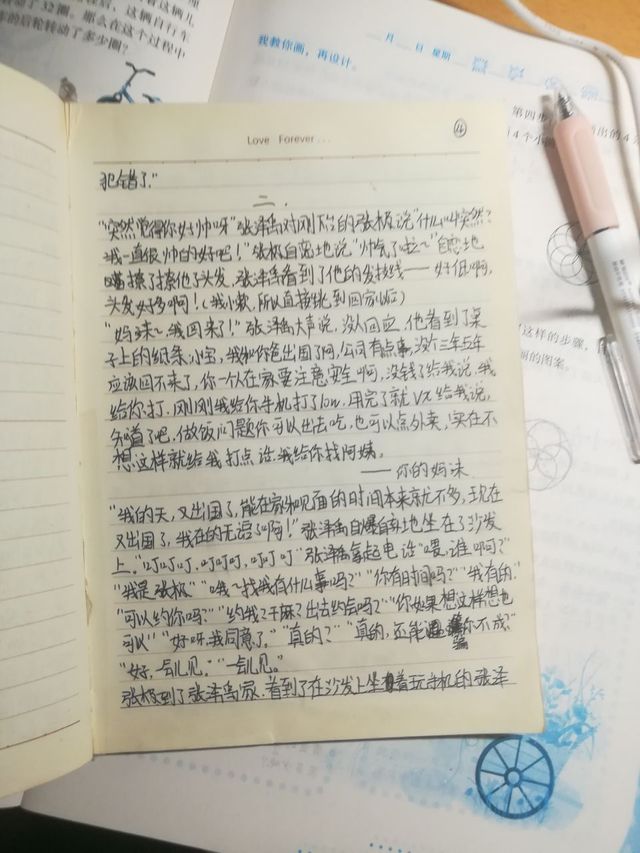 了32圈。那么在这个过程中
的后轮转动了多少圈？
我教你画，再设计。
月 日 星期
第四步
Love Forever...
④
犯错了。"
二.
"突然觉得你好帅呀"张泽禹对刚下台的张极说"什么叫突然？
我一直很帅的好吧！"张极自恋地说"帅气了啦～"自恋地
张泽禹看到了他的发技线——好低啊，
头发好多啊！（我小懒，所以直接跳到回家以后）
"妈咪～，我回来了！"张泽禹大声说，没人回应，他看到了桌
子上的纸条"小宝，我和你爸出国了啊，公司有点事，没个三年5年
应该回不来了，你一个人在家要注意安全啊，没钱了给我说，我
给你打，刚刚我给你手机打了10w，用完了就VX给我说，
知道了吧，做饭问题你可以出去吃，也可以点外卖，实在不
想这样就给我打点话，我给你找阿姨。
——你的妈咪
"我的天，又出国了，能在家和见面的时间本来就不多，现在
又出国了，我在的无语了啊！"张泽禹自爆自弃地坐在了沙发
上。"叮叮叮，叮叮叮，叮叮叮"张泽禹拿起电话"喂，谁啊？"
"我是张极""哦～找我有什么事吗？""你有时间吗？""我有的."
"可以约你吗？""约我？干麻？出去约会吗？""你如果想这样想也
可以""好呀，我同意了。""真的？""真的，还能骗你不成？"
"好，一会儿见。""一会儿见。"
张极到了张泽禹家，看到了在沙发上坐着玩手机的张泽
这样的步骤，
的图案。